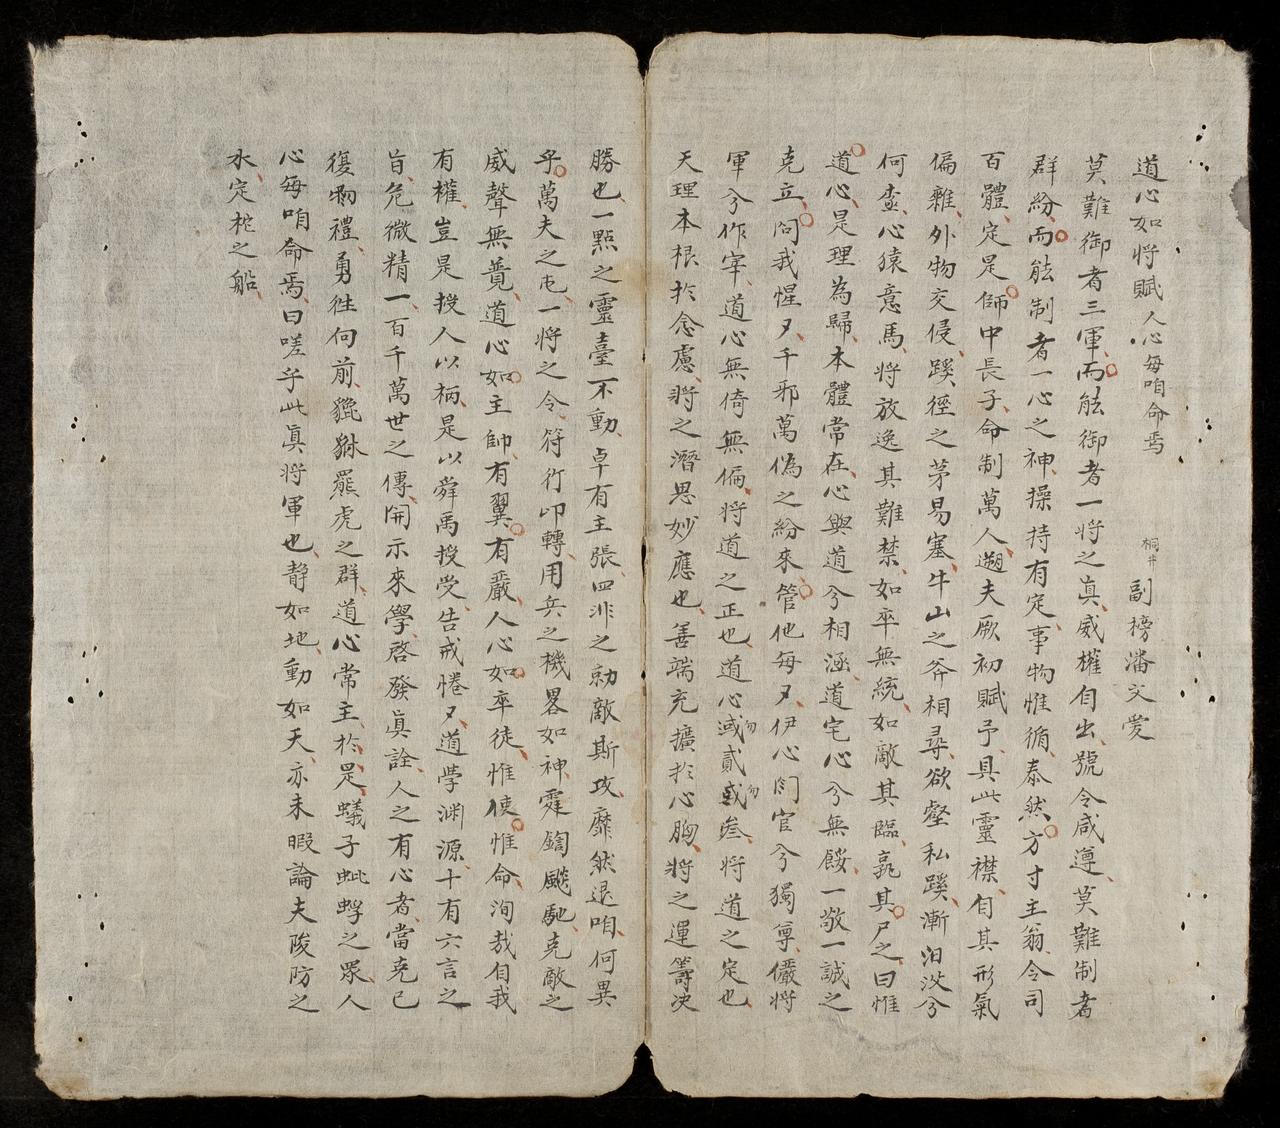 道心如將賦 人心每咱命焉
桐井 副榜潘文愛
莫難御者三軍而能御者一將之真威權自出號令咸遵莫難制者
群紛而能制者一心之神操持有定事物惟循泰然方寸主翁令司
百體定是師中長子命制萬人遡夫厥初賦予具此靈襟自其形氣
偏雜外物交侵蹊徑之茅易塞牛山之斧相尋欲壑私蹊漸汨汝兮
何查心猿意馬將放逸其難禁如卒無統如敵其臨孰其尸之曰惟
道心是理為歸本體常在心與道兮相涵道宅心兮無餒一敬一誠之
克立問我惺又千邪萬偽之紛來管他每又伊心閽官兮獨尊儼將
軍兮作宰道心無倚無偏將道之正也道心或勿貳或勿叄將道之定也
天理本根於念慮將之潛思妙應也善端充擴於心胸將之運籌决
勝也一點之靈臺不動卓有主張四湃之勍敵斯攻靡然退咱何異
乎萬夫之屯一將之令符行印轉用兵之機畧如神霆鍧飈馳克敵之
威聲無竟道心如主帥有翼有嚴人心如卒徒惟使惟命洵哉自我
有權豈是授人以柄是以舜禹授受告戒惓又道學渊源十有六言之
旨危微精一百千萬世之傳開示來學啓發眞詮人之有心者當克己
復物禮勇徃向前貔貅羆虎之群道心常主於是蟻子蚍蜉之眾人
心每咱命焉曰嗟乎此眞將軍也静如地動如天亦未暇論夫陖防之
水定柁之船